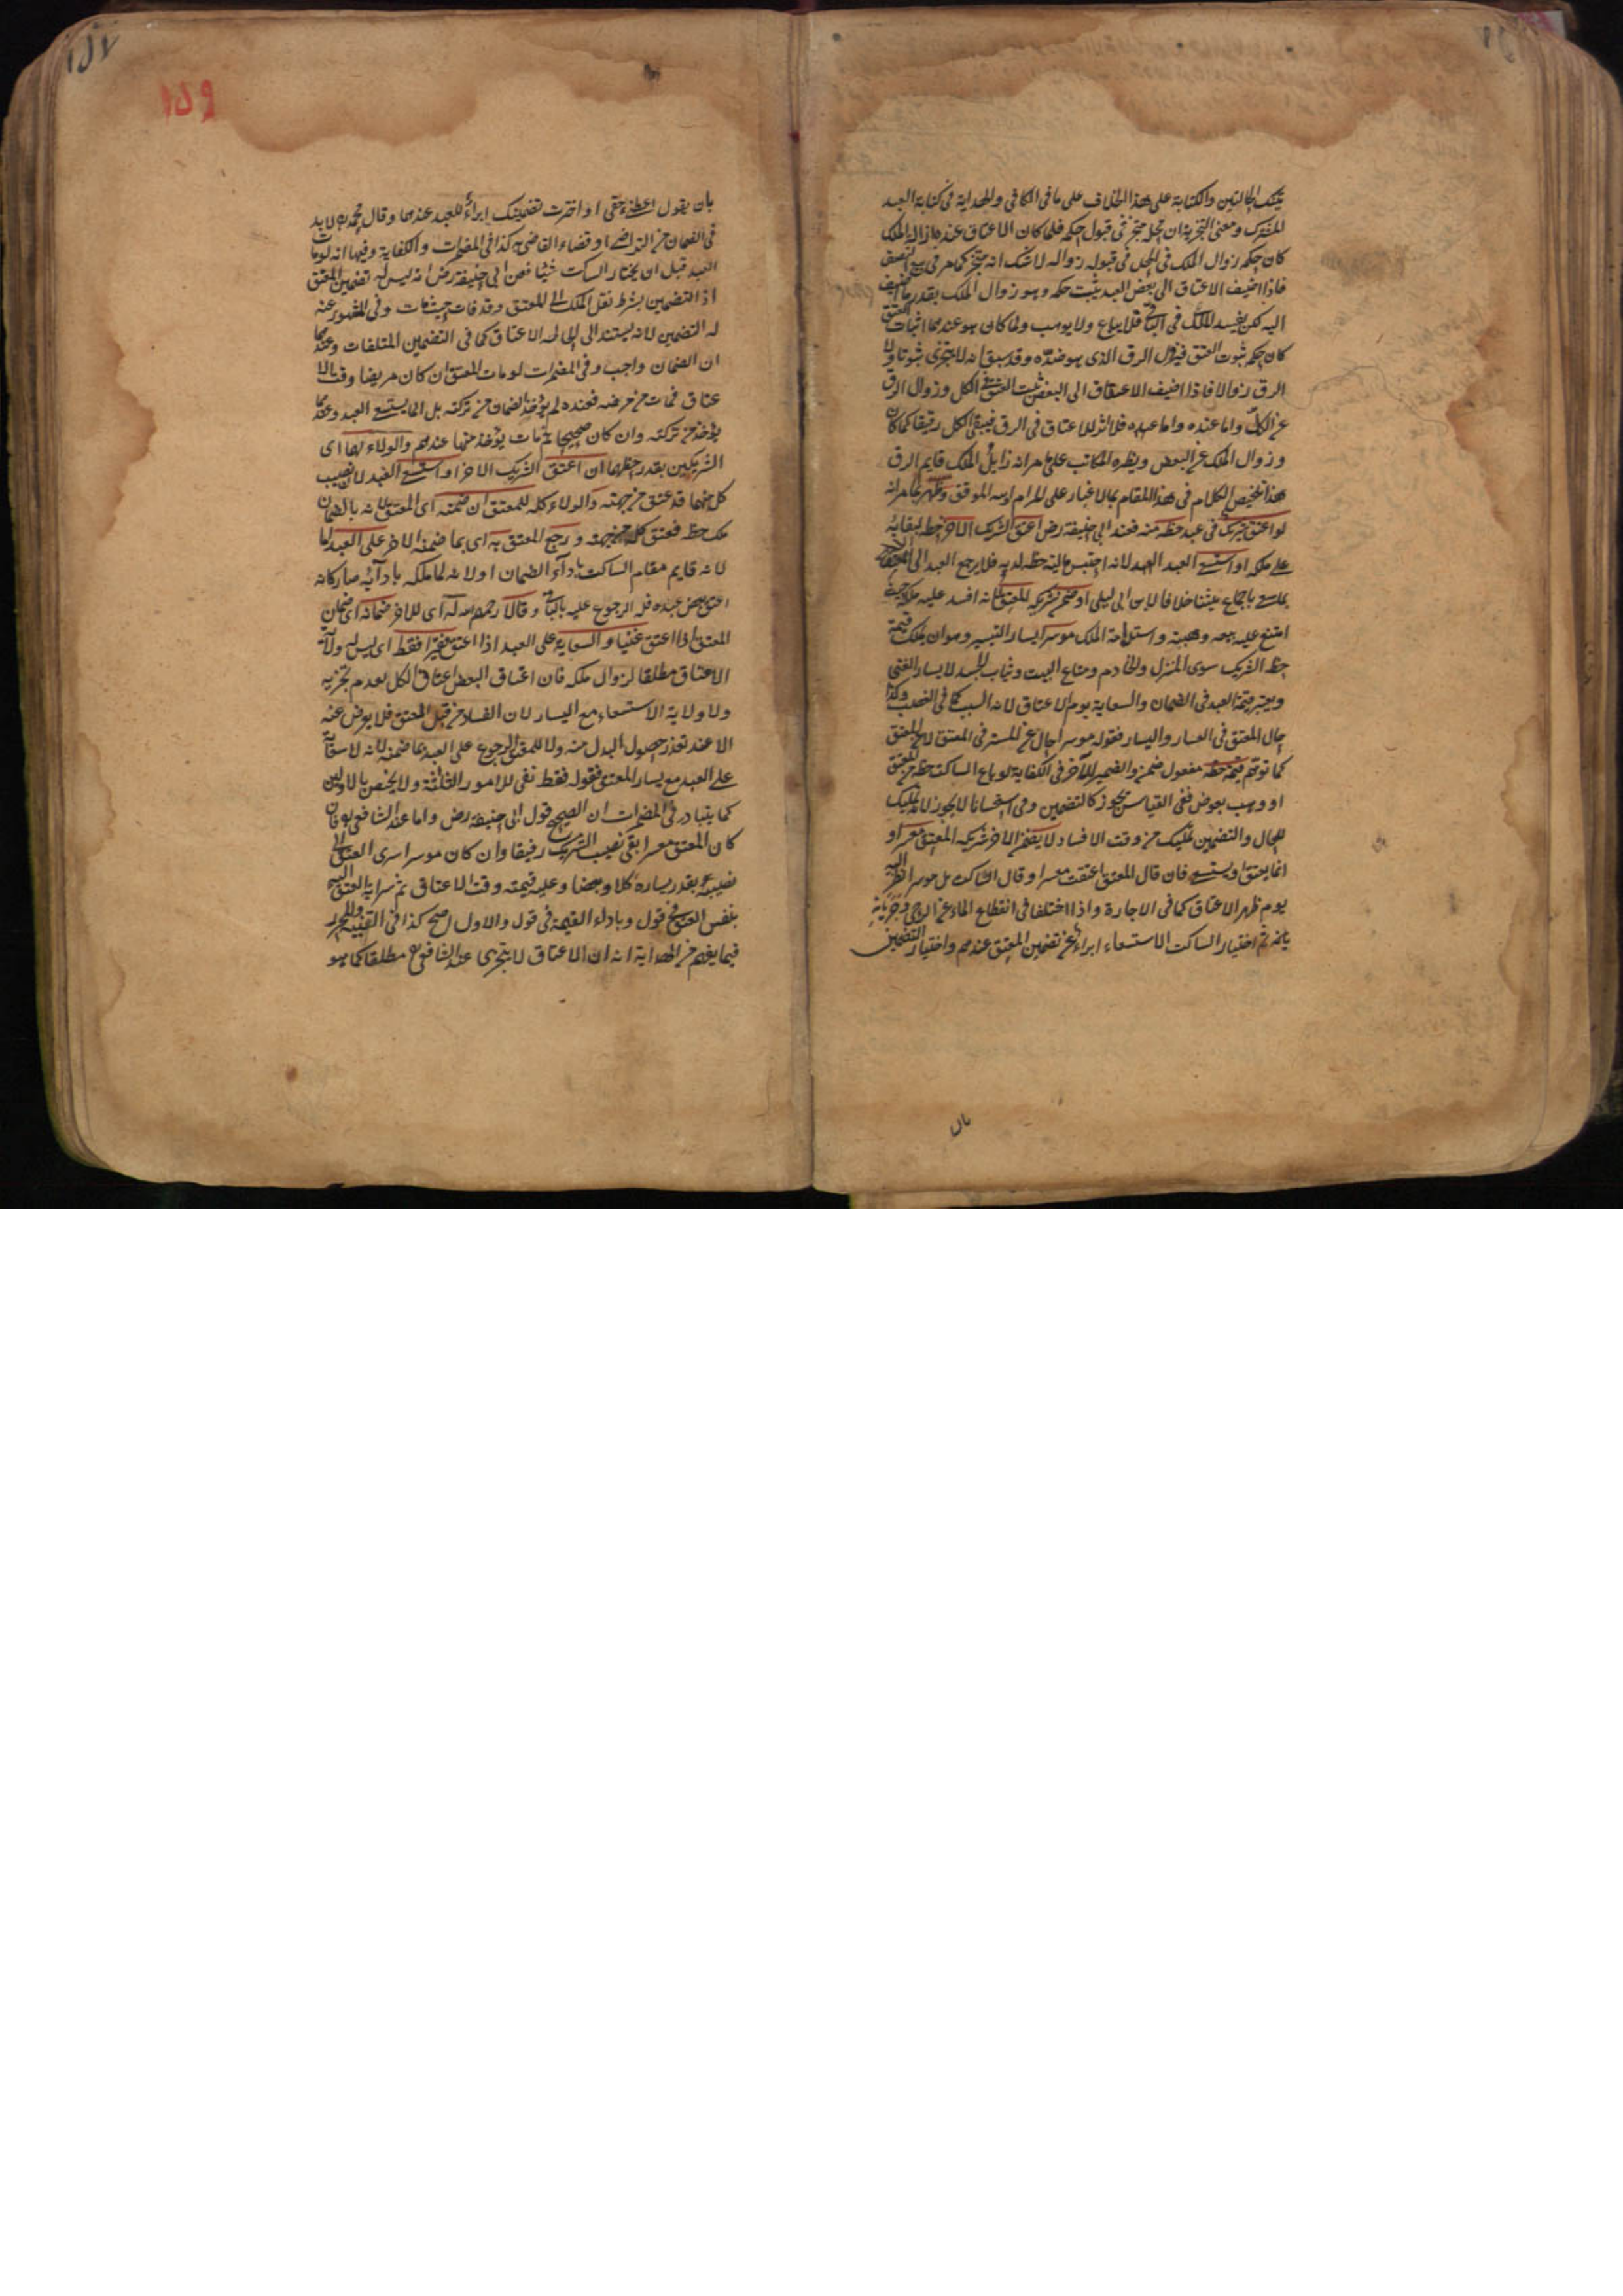 تلك الحالتين والكتابة على هذا الخلاف على ما فى الكافى والهداية فى كتابة العبد
المشترك ومعنى التجزية ان المحل متجز فى قبول حكمه فلما كان الاعتاق عنده ازالة الملك
كان حكمه زوال الملك فى المحل فى قبوله زواله لا شك انه متجز كما مر فى بيع النصف
فاذا اضيف الاعتاق الى بعض العبد يثبت حكمه وهو زوال الملك بقدر ما اضيف
اليه لكن يفسد الملك فى الباقى فلا يباع ولا يوهب ولما كان هو عندهما اثبات العتق
كان حكمه ثبوت العتق فيزول الرق الذى هو ضده وقد سبق انه لا يتجزى ثبوتا ولا
الرق زوالا فاذا اضيف الاعتاق الى البعض يثبت العتق فى الكل وزوال الرق
عن الكل واما عنده فلا اثر للاعتاق فى الرق فيبقى الكل رقيقا كما كان
وزوال الملك عن البعض ونظيره المكاتب على ما مر انه زايل الملك قايم الرق
هذا تلخيص الكلام فى هذا المقام بما لا غبار على المرام والله الموفق وظهر مما مر انه
لو اعتق شريك فى عبد حظه منه فعند ابى حنيفة رض اعتق الشريك الاخر حظه لبقائه
على ملكه او استسعى العبد لانه احتبس مالية حظه لديه فلا يرجع العبد الى المعتق
بما سعى باجماع علمائنا خلافا لابن ابى ليلى او ضمن شريكه المعتق لانه افسد عليه ملكه حيث
امتنع عليه بيعه وهبته واستدامة الملك موسرا يسار التيسير وهو ان يملك قيمة
حظ الشريك سوى المنزل والخادم ومتاع البيت وثياب الجسد لا يسار الغنى
ويعتبر قيمة العبد فى الضمان والسعاية يوم الاعتاق لانه السبب كما فى الغصب وكذا
حال المعتق فى العسار واليسار فقوله موسرا حال عن المستتر فى المعتق لا عن المعتق
كما توهم قيمة حظه مفعول ضمن والضمير للآخر فى الكفاية لو باع الساكت حظه من المعتق
او وهب بعوض ففى القياس يجوز كالتضمين وفى استحسانا لا يجوز لانه تمليك
للحال والتضمين تمليك من وقت الافساد لا يضمن الاخر شريكه المعتق معسرا و
انما يعتق او يستسعى فان قال المعتق اعتقت معسرا وقال الساكت بل موسرا نظر اليه
يوم ظهر الاعتاق كما فى الاجارة واذا اختلفا فى انقطاع الماء عن الرحى وجريانه
ثم اختيار الساكت الاستسعاء ابراء عن تضمين المعتق عندهم واختيار التضمين
بان
١٥٧
١٥٩
بان يقول اعطنى حقى او اخترت تضمينك ابراء للعبد عندهما وقال محمد لا بد
فى الضمان من التراضى او قضاء القاضى كذا فى المضمرات والكفاية وفيها انه لو مات
العبد قبل ان يختار الساكت شيئا فعن ابى حنيفة رض انه ليس له تضمين المعتق
اذ التضمين بشرط نقل الملك الى المعتق وقد فات حيث مات وفى المشهور عنه
له التضمين لانه يستند الى حالة الاعتاق كما فى التضمين المتلفات وعندهما
ان الضمان واجب وفى المضمرات لو مات المعتق ان كان مريضا وقت الا
عتاق فمات من مرضه فعنده لم يؤخذ الضمان من تركته بل انما يستسعى العبد وعندهما
يؤخذ من تركته وان كان صحيحا ثم مات يؤخذ منها عندهم والولاء لهما اى
الشريكين بقدر حظهما ان اعتق الشريك الاخر او استسعى العبد لان نصيب
كل منهما قد عتق من جهته والولاء كله للمعتق ان ضمنه اى المعتق لانه بالضمان
ملك حظه فعتق كله من جهته ورجع المعتق به اى بما ضمنه الاخر على العبد اما
لانه قايم مقام الساكت باداء الضمان او لانه لما ملكه بادائه صار كانه
اعتق بعض عبده فله الرجوع عليه بالباقى وقالا رحمهم الله له اى للاخر ضمانه اى ضمان
المعتق اذا اعتق غنيا والسعاية على العبد اذا اعتق فقيرا فقط اى ليس له ولاية
الاعتاق مطلقا لزوال ملكه فان اعتاق البعض اعتاق الكل لعدم تجزيه
ولا ولاية الاستسعاء مع اليسار لان الفساد من قبل المعتق فلا يعوض عنه
الا عند تعذر حصول البدل منه ولا للمعتق الرجوع على العبد بما ضمنه لانه لا سعاية
على العبد مع يسار المعتق فقوله فقط نفى للامور الثلاثة ولا يختص بالاولين
كما يتبادر فى المضمرات ان الصحيح قول ابى حنيفة رض واما عند الشافعى فان
كان المعتق معسرا بقى نصيب الشريك رقيقا وان كان موسرا سرى العتق الى
نصيبه بقدر يساره كلا او بعضا وعليه قيمته وقت الاعتاق ثم سراية العتق اليه
بنفس العتق فى قول وباداء القيمة فى قول والاول اصح كذا فى التنبيه والمحرر
فيما يفهم من الهداية انه ان الاعتاق لا يتجزى عند الشافعى مطلقا كما هو